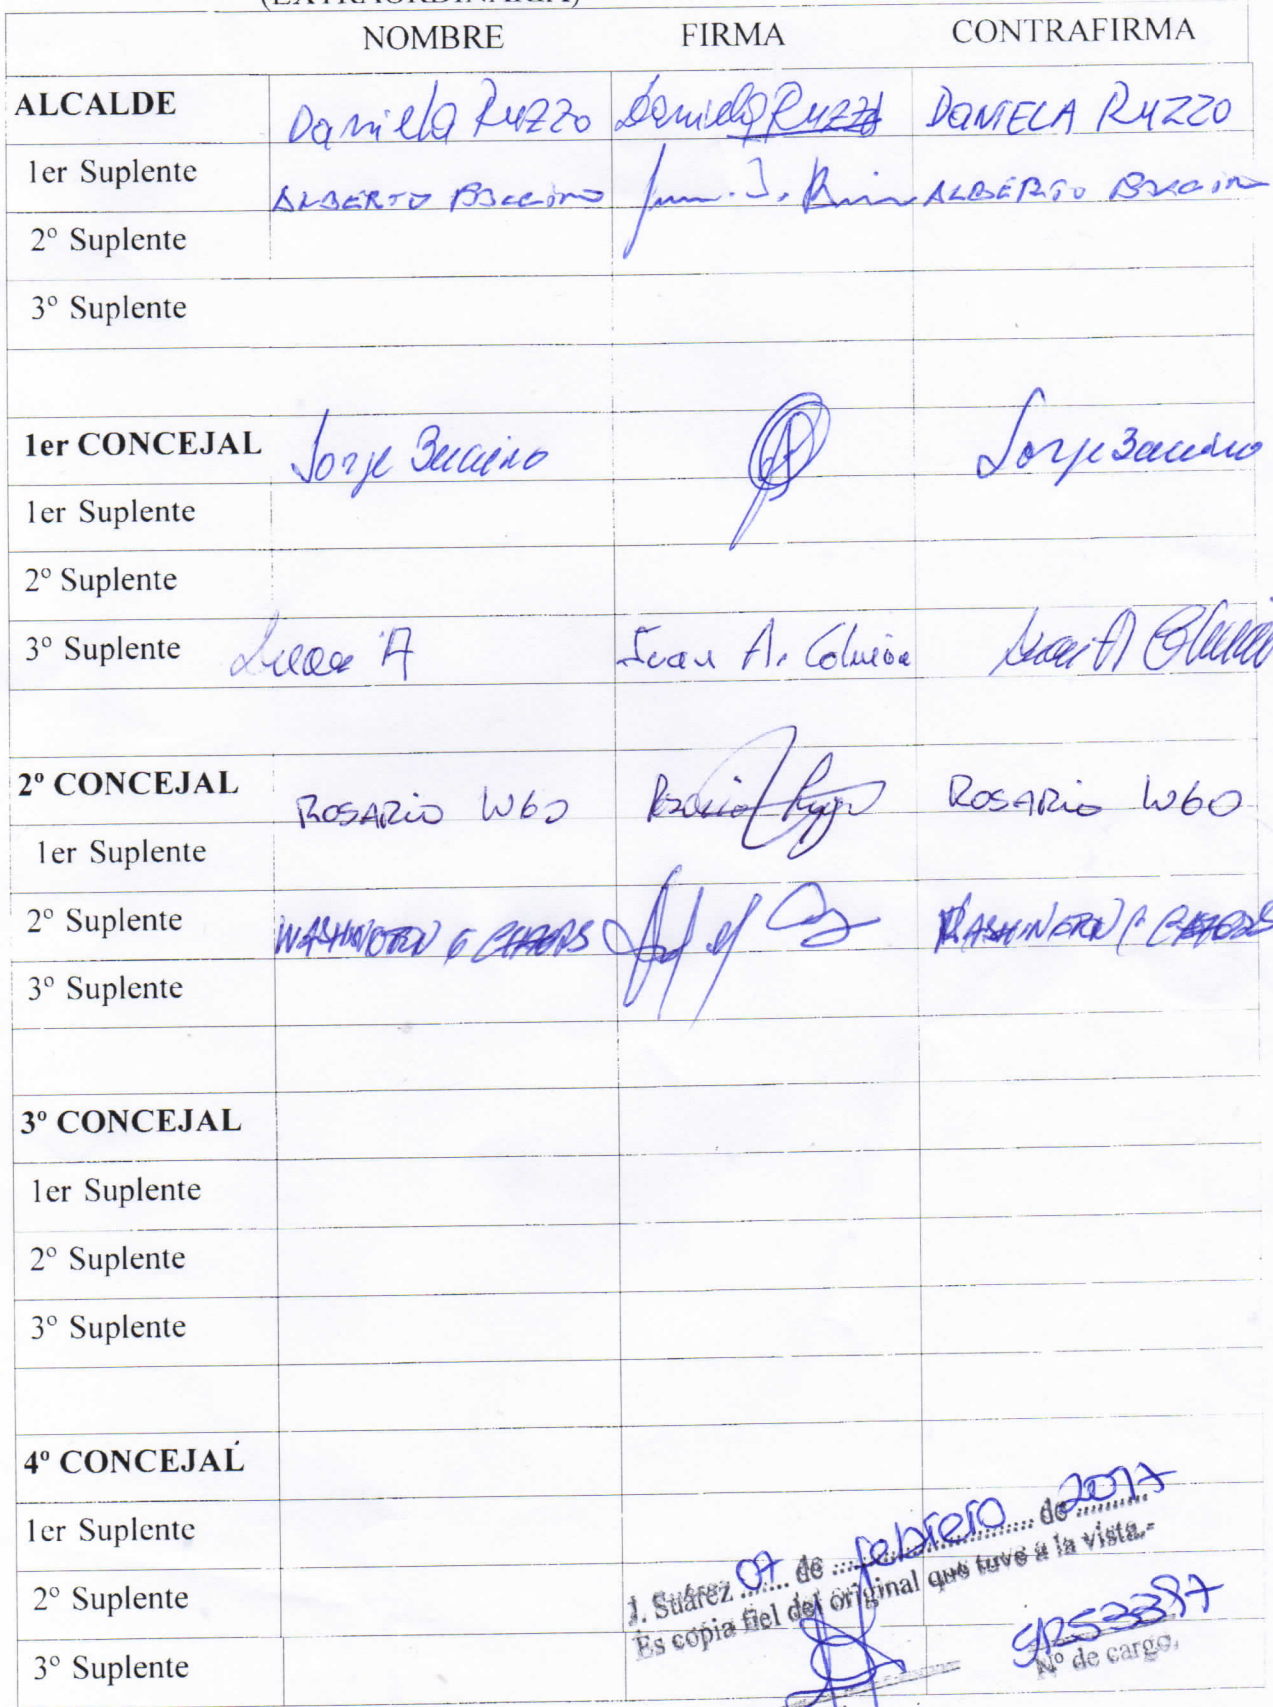 (EXTRAORDINARIA)
NOMBRE FIRMA CONTRAFIRMA
ALCALDE Daniella Ruzzo Daniela Ruzzo DANIELA RUZZO
1er Suplente ALBERTO ALBERTO
2º Suplente
3º Suplente
1er CONCEJAL Jorge Jorge
1er Suplente
2º Suplente
3º Suplente Juan A Juan A. Juan A
2º CONCEJAL ROSARIO LUGO Rosario Lugo ROSARIO LUGO
1er Suplente
2º Suplente WASHINGTON WASHINGTON
3º Suplente
3º CONCEJAL
1er Suplente
2º Suplente
3º Suplente
4º CONCEJAL
1er Suplente
2º Suplente
3º Suplente
J. Suárez 07 de febrero de 2017
Es copia fiel del original que tuve a la vista.-
Nº de cargo.